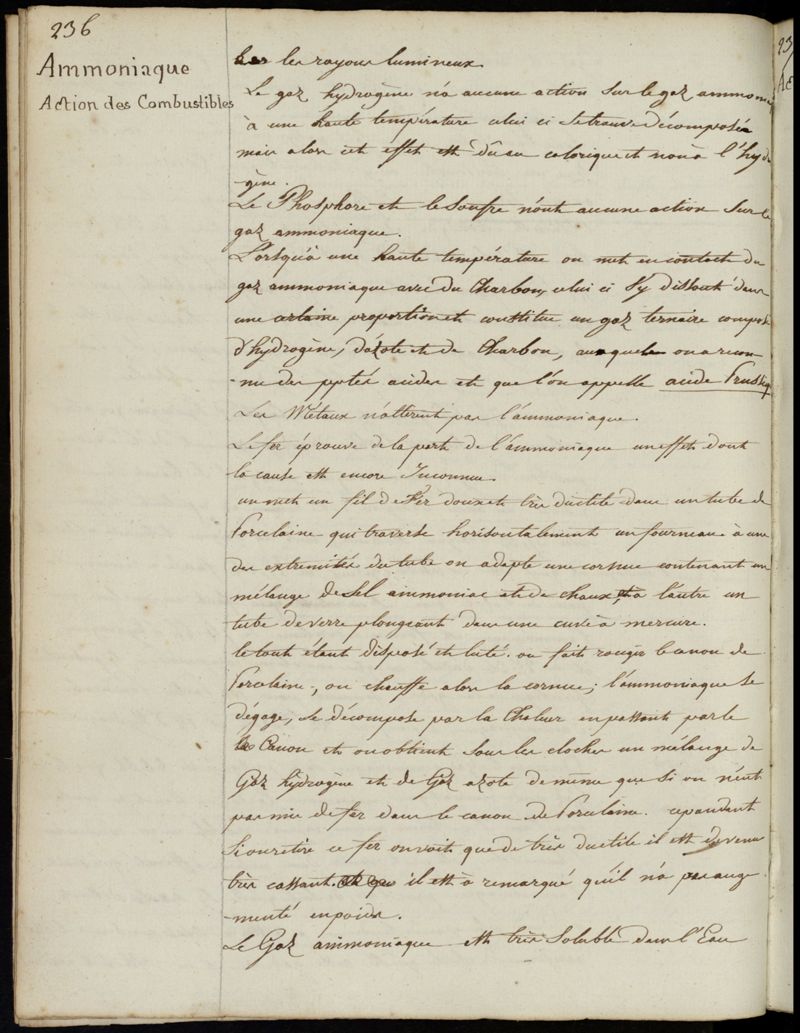 236
Ammoniaque
Action des Combustibles
les rayons lumineux
Le gaz hydrogène n'a aucune action sur le gaz ammoniaq
à une haute température celui ci se trouve décomposé
mais alors cet effet est dû au calorique et non à l'hydr
-gène.
Le Phosphore et le soufre n'ont aucune action sur le
gaz ammoniaque.
Lorsqu'à une haute température on met en contact du
gaz ammoniaque avec du Charbon, celui ci s'y dissout dans
une certaine proportion et constitue un gaz ternaire composé
d'hydrogène, d'azote et de Charbon, auquel on a recon-
-nu des pptés acides et que l'on appelle acide Prussiq
Les Métaux n'altèrent pas l'ammoniaque.
Le fer éprouve de la part de l'ammoniaque un effet dont
la cause est encore Inconnue.
on met un fil de Fer doux et très ductile dans un tube de
Porcelaine qui traverse horisontalement un fourneau à une
des extremités du tube on adapte une cornue contenant un
mélange de Sel ammoniac et de chaux, et à l'autre un
tube de verre plongeant dans une cuve à mercure.
le tout étant disposé et luté. on fait rougir le canon de
Porcelaine, on chauffe alors la cornue; l'ammoniaque se
dégage, se décompose par la Chaleur en passant par le
Canon et on obtient sous les cloches un mélange de
Gaz hydrogène et de Gaz azote de même que si on n'eut
pas mis de fer dans le canon de Porcelaine. cependant
si on retire ce fer on voit que de très ductile il est devenu
très cassant. il est à remarqué qu'il n'a pas aug-
-menté en poids.
Le Gaz ammoniaque est très Soluble dans l'Eau